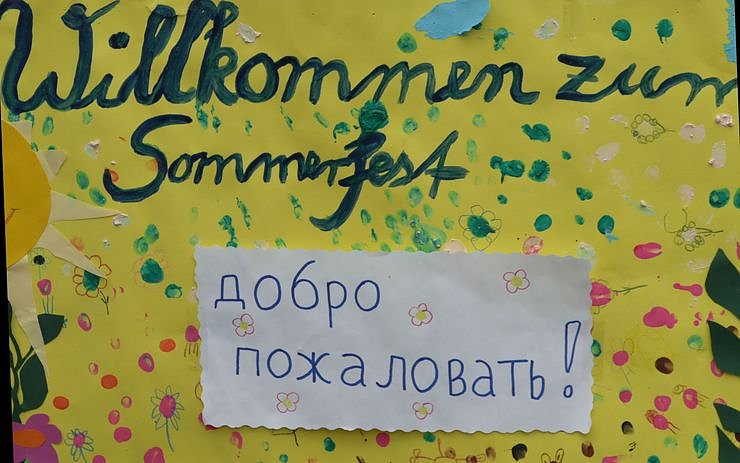 Willkommen zum
Sommerfest
добро
пожаловать!